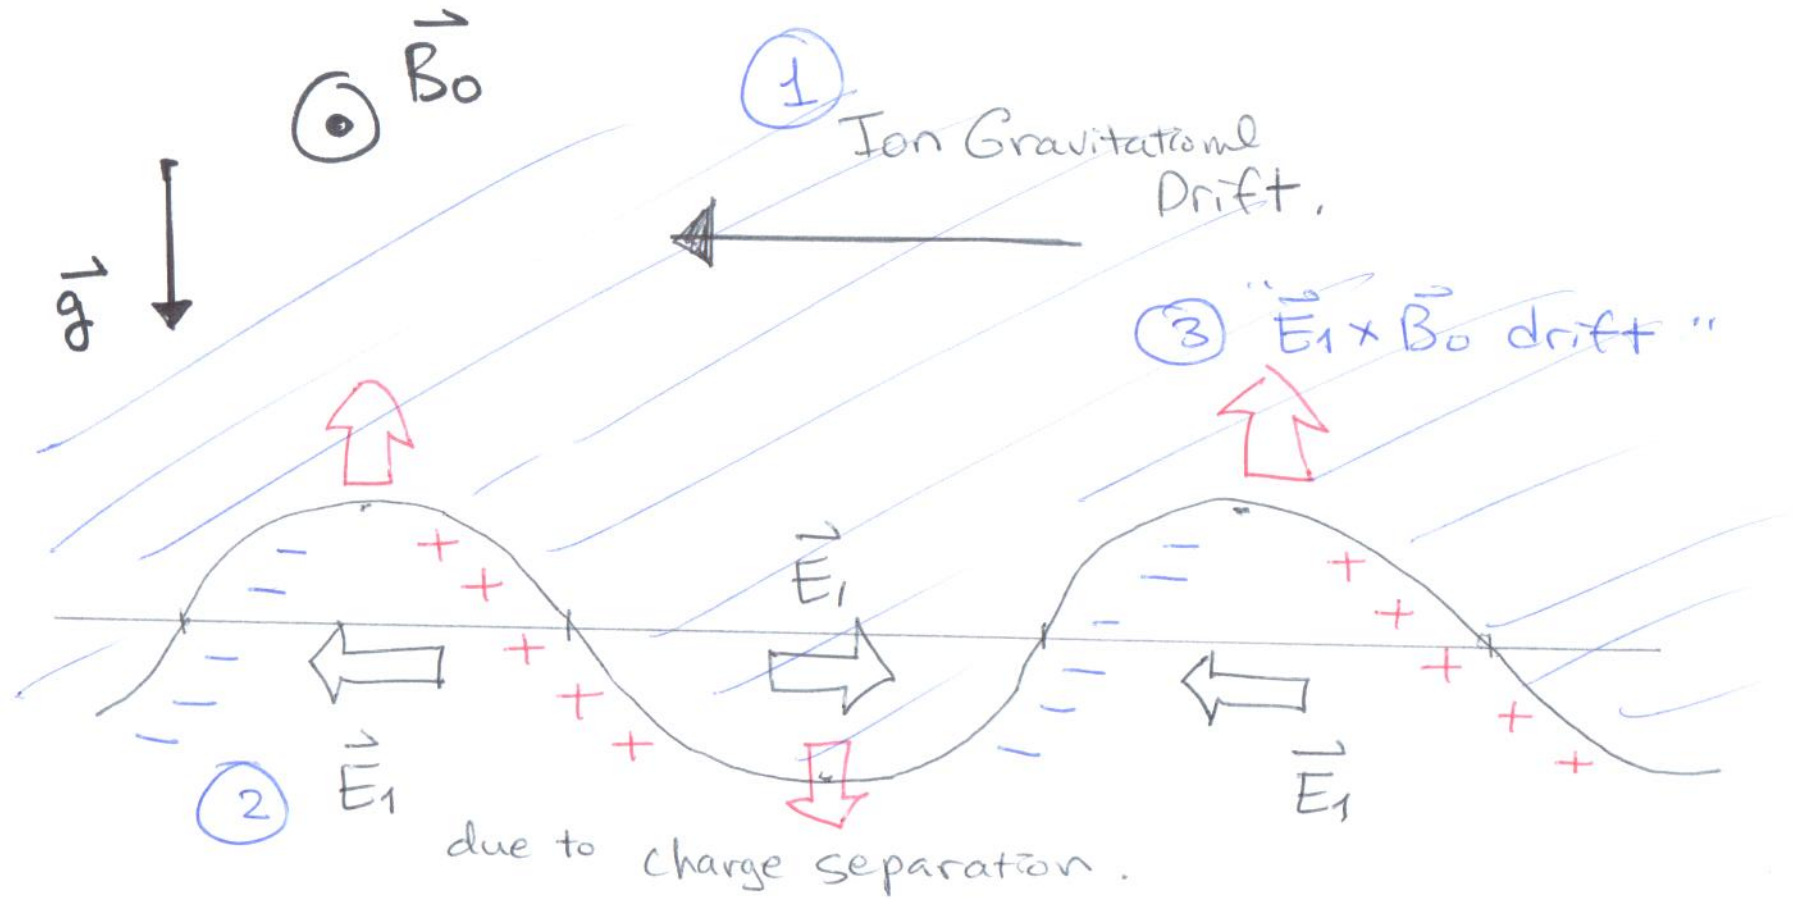 B⃗0
1
Ion Gravitational
Drift.
g⃗
3 "E⃗1 × B⃗0 drift"
E⃗1
2
E⃗1
E⃗1
due to charge separation.